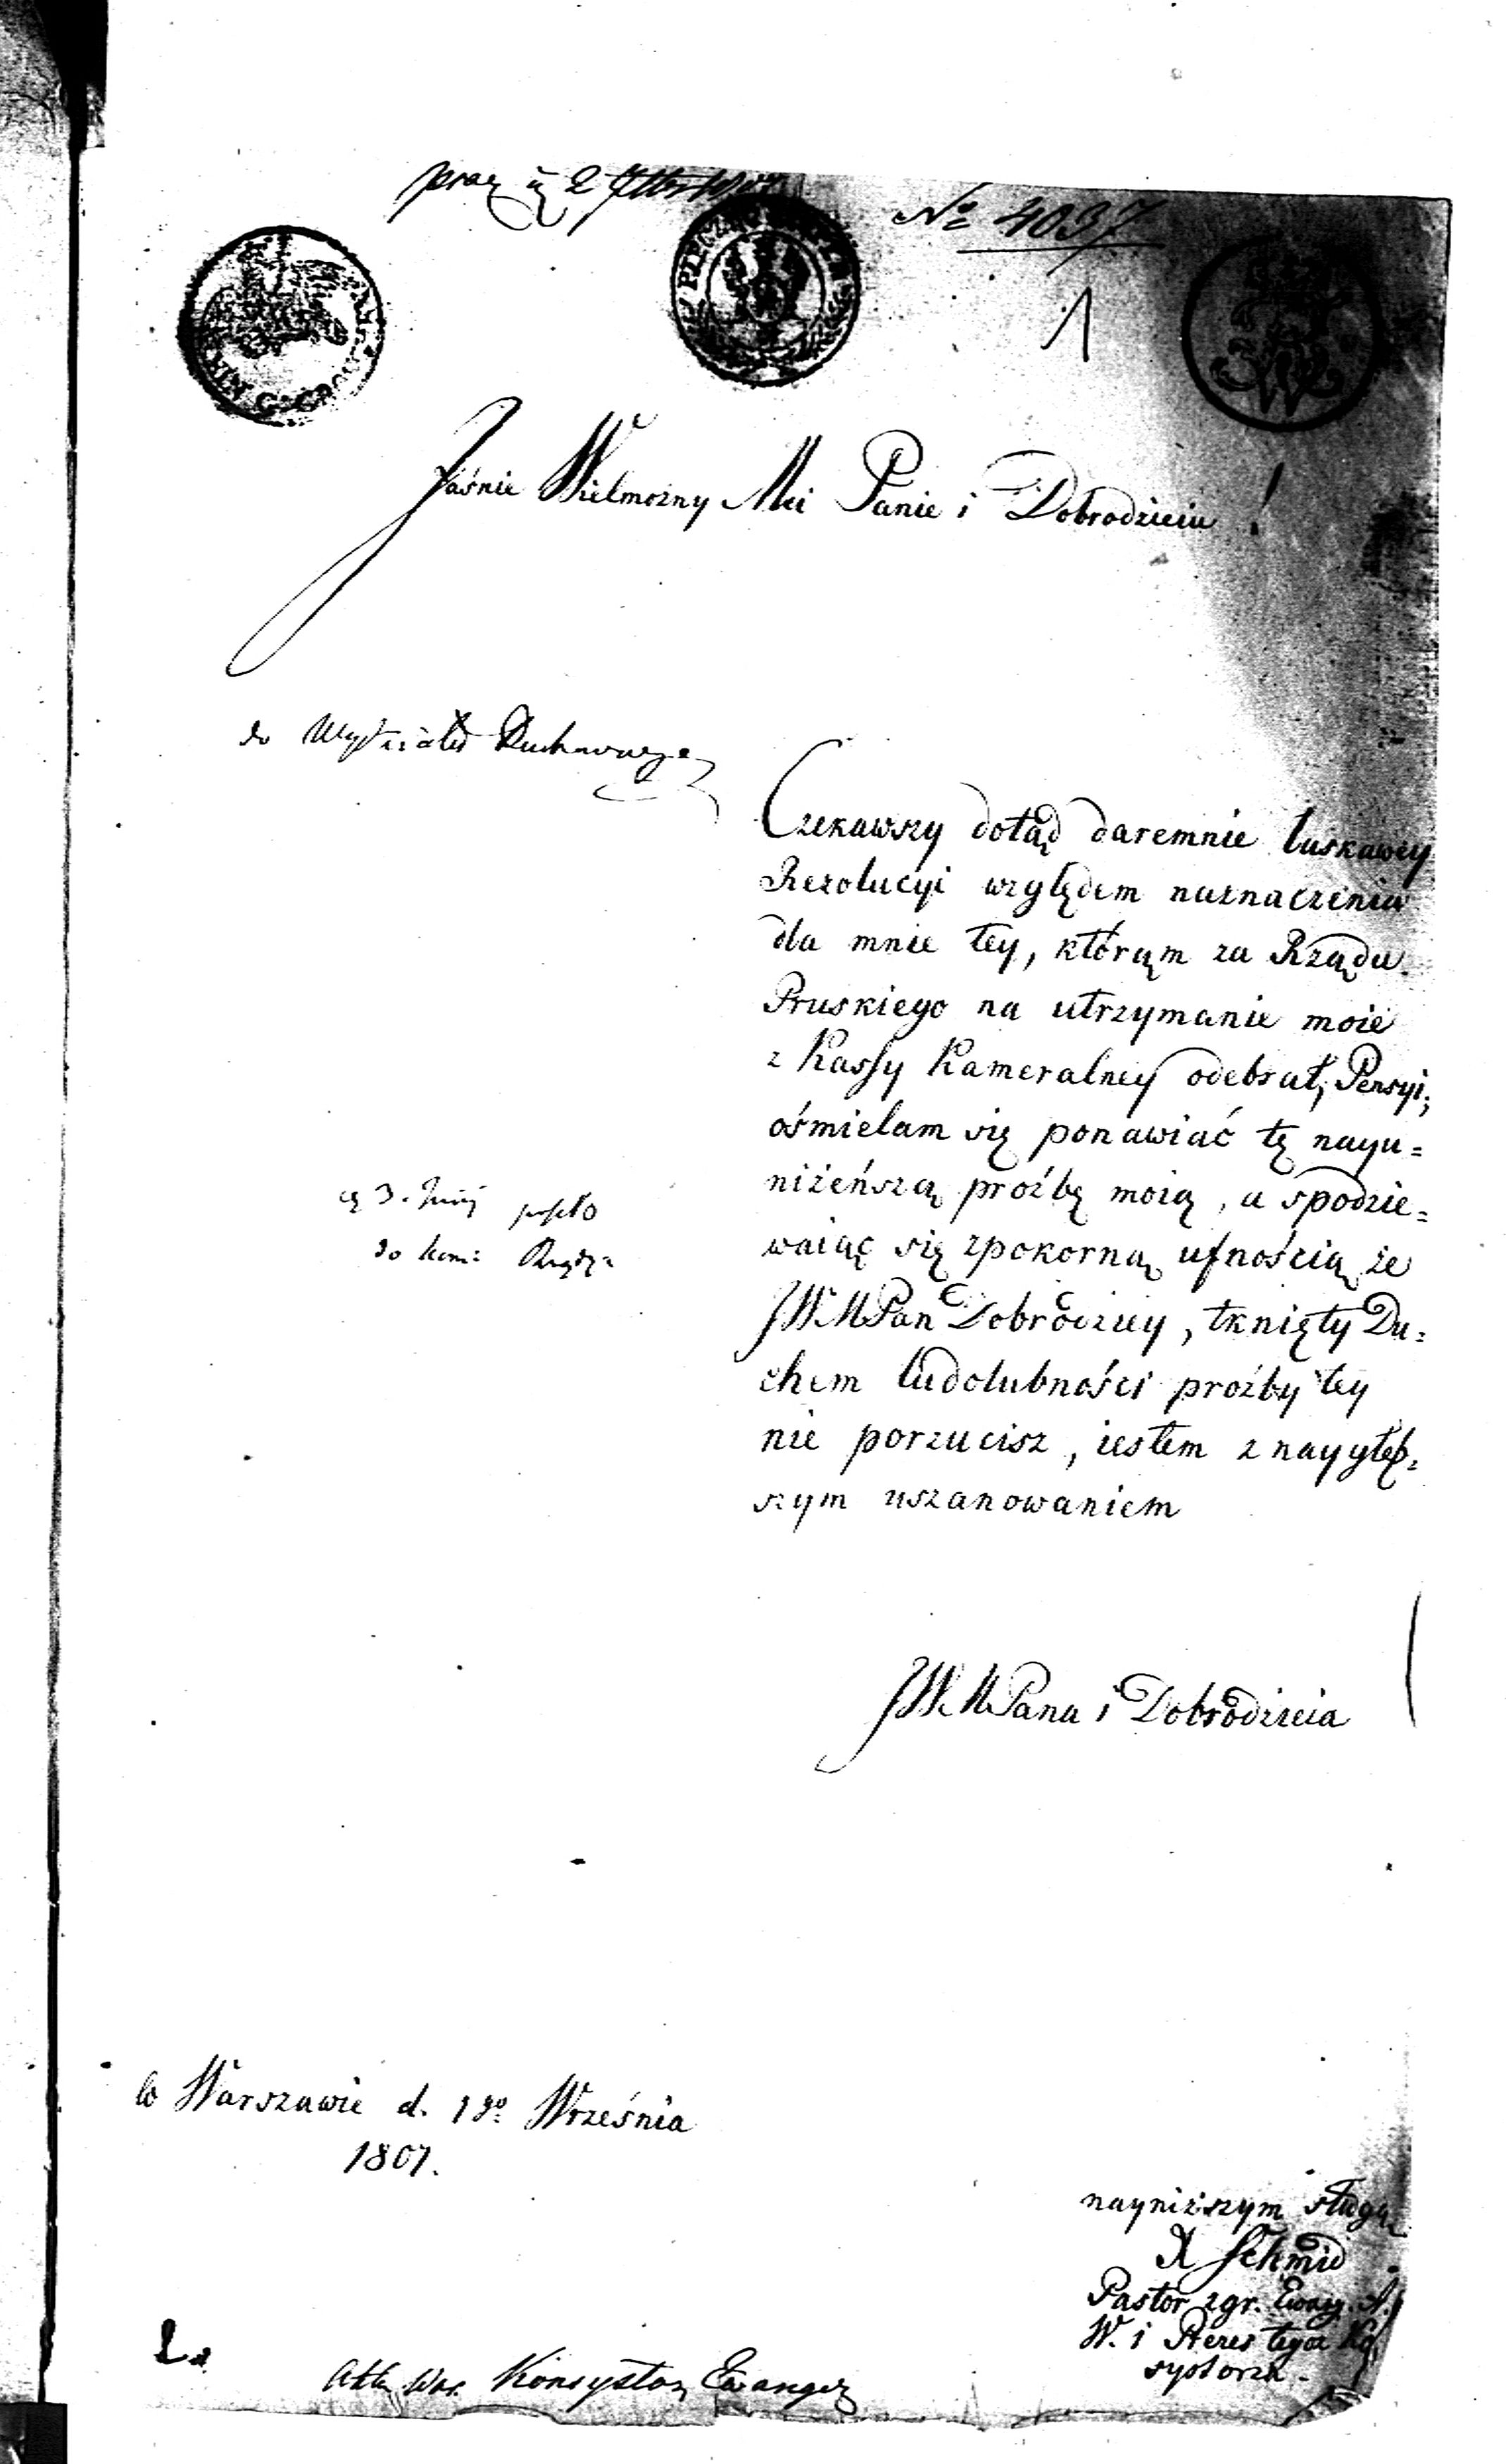 № 4037
1
Jaśnie Wielmożny Mci Panie i Dobrodzieiu!
do Wydziału Duchownego
Czekawszy dotąd daremnie łaskawey
Rezolucyi względem naznaczenia
dla mnie tey, którąm za Rządu
Pruskiego na utrzymanie moie
z Kassy Kameralney odebrał, Pensyi;
ośmielam się ponawiać tę nayu=
niżeńszą proźbę moią, a spodzie=
waiąc się z pokorną ufnością, że
JWMPan Dobrodziey, tknięty Du=
chem ludolubności proźby tey
nie porzucisz, iestem z naygłęb=
szym uszanowaniem
poszło
do Kom:
JWMPana i Dobrodzieia
w Warszawie d. 19º Września
1807.
nayniższym sługą
X Schmid
Pastor zgr. Ewang. A.
W. i Prezes tegoż Ko
systorza.
Konsystorz Ewangez